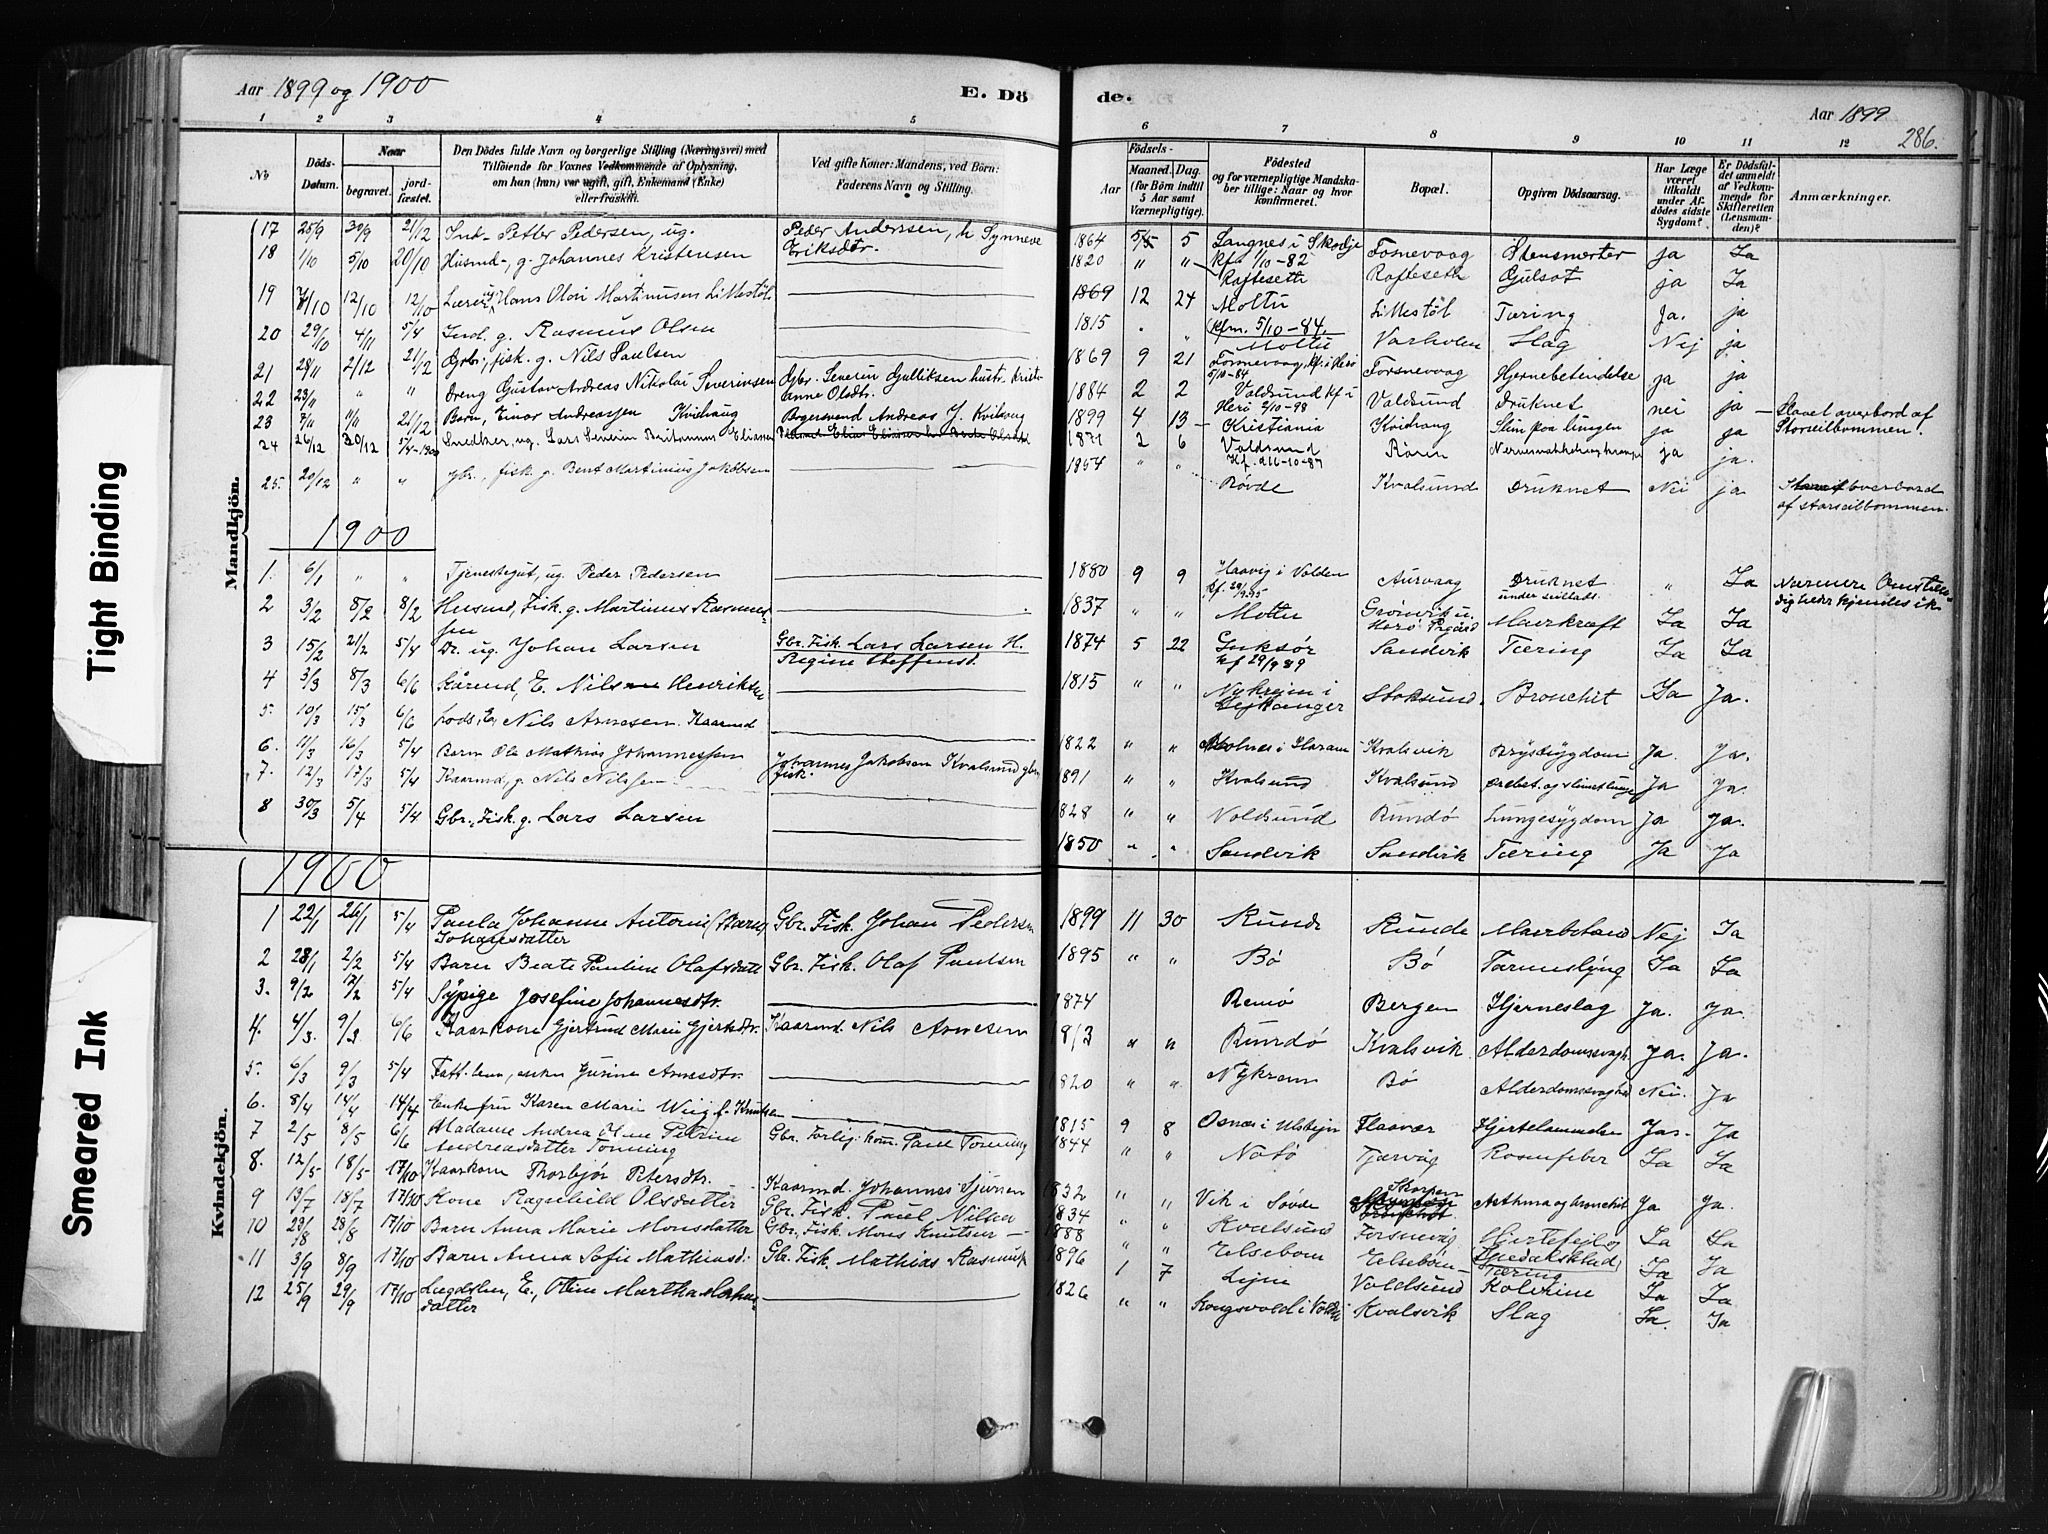 Aar 1899 og 1900
E. Dö
de.
Aar 1899
286.
1 2 3 4 5 6 7 8 9 10 11 12
No
Döds-Datum.
Naar
begravet.
jord-fæstet.
Den Dödes fulde Navn og borgerlige Stilling (Næringsvei) med
Tilföiende for Voxnes Vedkommende af Oplysning,
om han (hun) var ugift, gift, Enkemand (Enke)
eller fraskilt.
Ved gifte Koner: Mandens, ved Börn:
Faderens Navn og Stilling.
Födsels-
Aar
Maaned. Dag.
(for Börn indtil
5 Aar samt
Værnepligtige).
Födested
og for værnepligtige Mandska-
ber tillige: Naar og hvor
konfirmeret.
Bopæl.
Opgiven Dödsaarsag.
Har Læge
været
tilkaldt
under Af-
dödes sidste
Sygdom?
Er Dödsfal-
det anmeldt
af Vedkom-
mende for
Skifteretten
(Lensman-
den)?
Anmærkninger.
Mandkjön.
17 25/9 30/9 21/12 Ind- Petter Pedersen, ug. Peder Anderssen, h Synneve Eriksdtr. 1864 5 Langnes i Skodje kfm 1/10-82 Fosnevaag Stensmerter ja Ja
18 1/10 5/10 20/10 Husmd-, g. Johannes Kristensen 1820 " " Rafteseth Rafteseth Gulsot ja Ja
19 7/10 12/10 12/10 Lærer Hans Olai Martinusen Limestøl 1869 12 24 Moltu kfm. 5/10-84. Limestøl Tæring Ja. ja
20 29/10 4/11 5/4 Ind. g. Rasmus Olsen 1815 " Moltu Varholen Slag Nej ja
21 28/11 2/12 21/12 Gbr., fisk. g. Nils Paulsen 1869 9 21 Fosnevaag, kf. i Herø 5/10-84 Forsnevaag Hjernebetendelse ja ja
22 23/11 " " Dreng Gustav Andreas Nikolai Severinsen Gbr. Severin Gulliksen hustr. Kristianne Olsdtr. 1884 2 2 Voldsund kf i Herø 2/10-98 Voldsund Druknet nei ja Slaaet overbord af Storseilbommen.
23 7/11 11/11 21/12 Barn, Einar Andreassen Kvidvaug Borgersvend Andreas J. Kvidvag 1899 4 13 Kristiania Kvidvaug Slim paa lungen ja ja
24 26/12 30/12 5/4-1900 Snedker, ug. Lars Severin Britannus Eliassen 1871 2 6 Voldsund Kf. 16-10-87 Røren ja ja.
25. 20/12 " " gbr., fisk. g. Bent Martinius Jakobsen 1854 " " Røvde Kvalsund Druknet Nei ja overbord af storseilbommen.
1900
1. 6/1 " " Tjenestegut, ug. Peder Pedersen 1880 9 9 Haavig i Volden Aurvaag Druknet under seilads. " Ja Nærmere Omstændigheder kjendes ik.
2 3/2 8/2 8/2 Husmd, Fisk. g. Martinus Rasmussen 1837 " " Moltu Grønvik u. Herø Prgård Mavekræft Ja Ja
3 15/2 21/2 5/4 Dr. ug. Johan Larsen Gbr. Fisk Lars Larsen H. Regine Steffensd. 1874 5 22 Guksør kf 29/9 89 Sandvik Tæring Ja Ja
4 3/3 8/3 6/6 Kårmd, E. Nils Henriksen 1815 " " Nykrejm i Lejkanger Stoksund Bronchit Ja Ja.
5. 10/3 15/3 6/6 Lods, E. Nils Arnesen. Kaarmd 1822 " " i Haram Kvalsvik Brystsygdom Ja. Ja.
6. 11/3 16/3 5/4 Barn Ole Mathias Johannessen Johannes Jakobsen Kvalsund gbr. fisk. 1891 " " Kvalsund Kvalsund Ja ja.
7. 12/3 17/3 5/4 Kaarmd, g. Nils Nilssen 1828 " " Voldsund Rundø Lungesygdom Ja Ja.
8 30/3 5/4 5/4 Gbr., Fisk. g. Lars Larsen 1850 " " Sandvik Sandvik Tæring Ja Ja
Kvindekjön.
1900
1 22/1 26/1 5/4 Paula Johanne Antonie (Barn) Johansdatter Gbr. Fisk. Johan Pedersen 1899 11 30 Runde Runde Mavebetænd Nej Ja
2 28/1 2/2 5/4 Barn Beate Pauline Olafsdatt Gbr. Fisk. Olaf Paulsen 1895 " " Bø Bø Tarmslyng Ja Ja
3. 9/2 12/2 5/4 Sypige Josefine Johannesdtr. 1874 Remø Bergen Hjerneslag Ja. Ja.
4. 4/3. 9/3 6/6 Kaarkone Gjertrud Marie Gjertsdtr. Kaarmd. Nils Arnesen 1813 " " Rundø Kvalsvik Alderdomssvagh. Ja. Ja.
5. 6/3 9/3 5/4 Fatt. lem, enke Jusine Arnesdtr. 1820 " " Nykrem Bø Alderdomssvaghed Nei. Ja
6. 8/4 14/4 14/4 Enkefru Karen Marie Wiig f. Knutsen 1815 9 8 Osnæs i Ulstejn Flaavær Hjertelammelse Ja. Ja
7 2/5 8/5 6/6 Madame Andrea Oline Petrine Andreasdatter Tonning Gbr. Forlig.kom. Paul Tonning 1844 " " Notø Tjørvåg Rosenfeber Ja Ja
8. 12/5 18/5 17/10 Kaarkone Thorbjør Petersdtr. Kaarmd. Johannes Sjursen 1832 " " Vik i Søvde Skorpen Asthma og bronchit Ja Ja.
9 13/7 18/7 17/10 Kone Ragnhild Olsdatter Gbr. Fisk. Paul Nilsen 1834 " Kvalsund Forsnevåg Hjertefejl og Ja Ja
10 23/8 28/8 17/10 Barn Anna Marie Monsdatter Gbr. Fisk Mons Knutsen 1888 " " Eltsebøen Eltsebøen Tæring Ja Ja
11 3/9 8/9 17/10 Barn Anna Sofie Mathiasd: Gbr. Fisk. Mathias Rasmuss 1896 1 7 Voldsund Kolerine Ja Ja
12 25/9 29/9 17/10 Lægdslem, E., Oline Martha datter 1826 " " Kongsvold i Volden Kvalsvik Slag Ja. Ja
Tight Binding
Smeared Ink